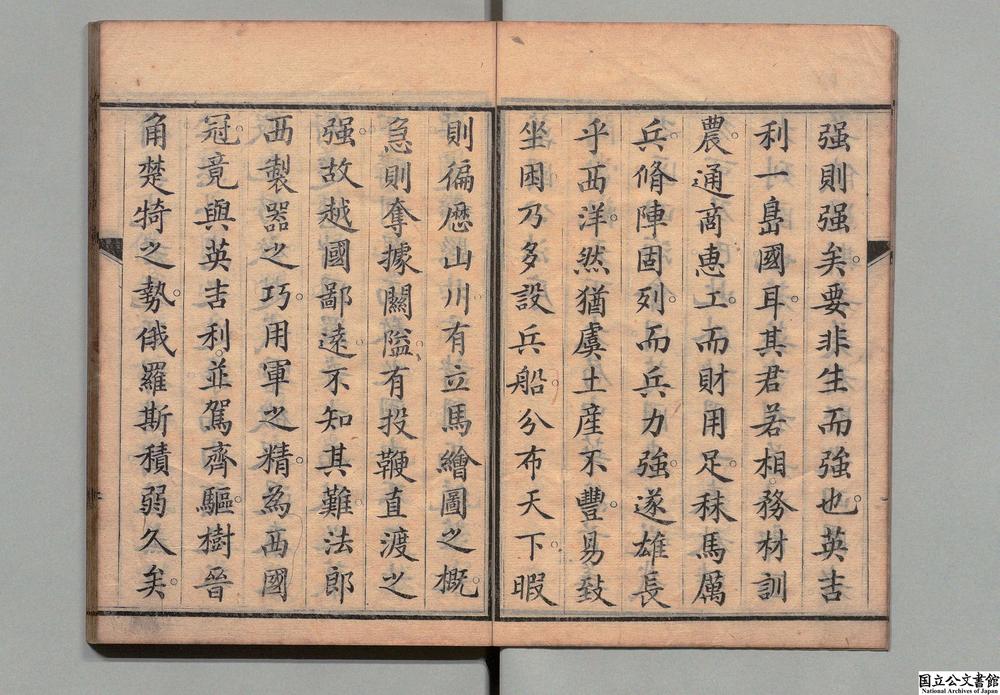 强則强矣要非生而强也英吉
利一島國耳其君若相務材訓
農通商惠工而財用足秣馬厲
兵脩陣固列而兵力强遂雄長
乎西洋然猶虞土産不豐易致
坐困乃多設兵船分布天下暇
則徧歷山川有立馬繪圖之概
急則奪據關隘有投鞭直渡之
强故越國鄙遠不知其難法郎
西製器之巧用軍之精為西國
冠竟與英吉利並駕齊驅樹晉
角楚犄之勢俄羅斯積弱久矣
国立公文書館
National Archives of Japan